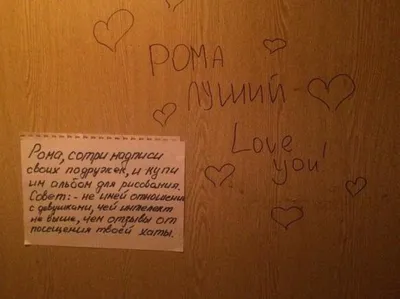 РОМА
ЛУШИЙ -
Love
you!
Рома, сотри надписи
своих подружек, и купи
им альбом для рисования.
Совет: - не имей отношения
с девушками, чей интелект
не выше, чем отзывы от
посещения твоей хаты.